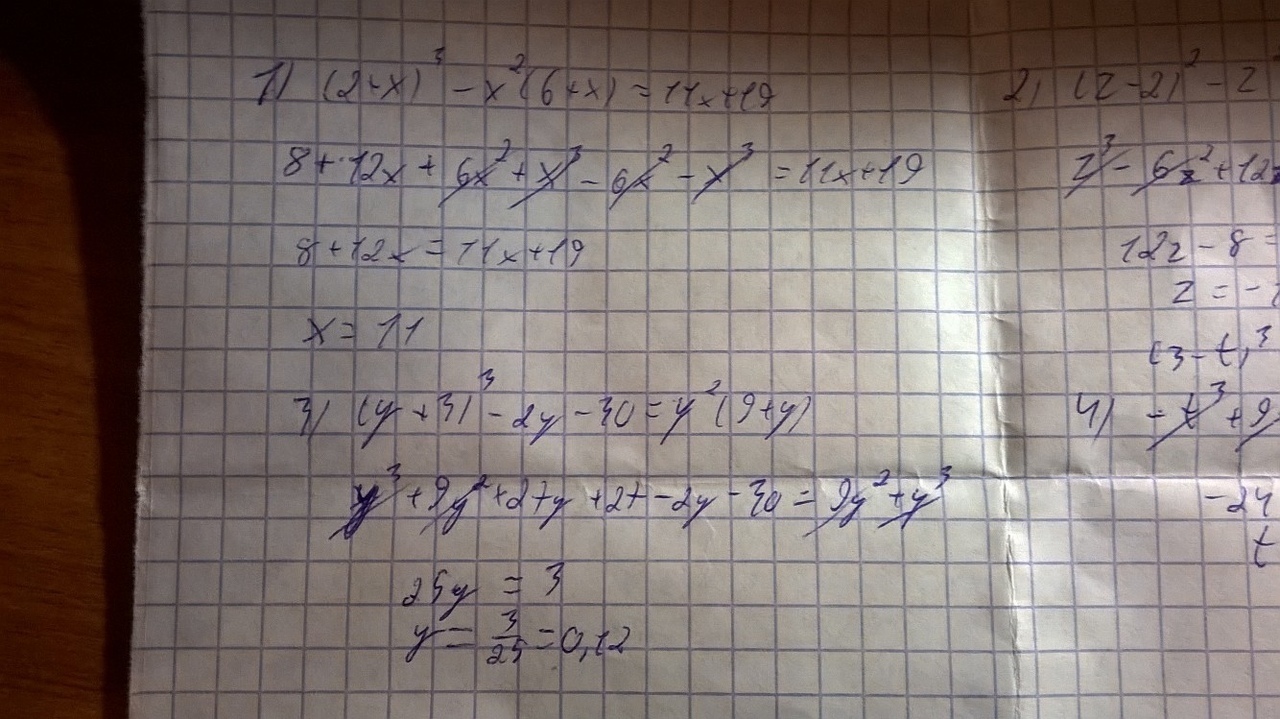 1) (2+x)³ - x²(6+x) = 11x+19
8+12x+6x²+x³-6x²-x³ = 11x+19
8+12x=11x+19
x = 11
3) (y+3)³-2y-30=y²(9+y)
y³+9y²+27y+27-2y-30=9y²+y³
25y = 3
y = 3/25 = 0,12
2) (z-2)² - z
z³-6z²+12z
12z-8=
z = -
(3-t)³
4) -t³+9
-24
t